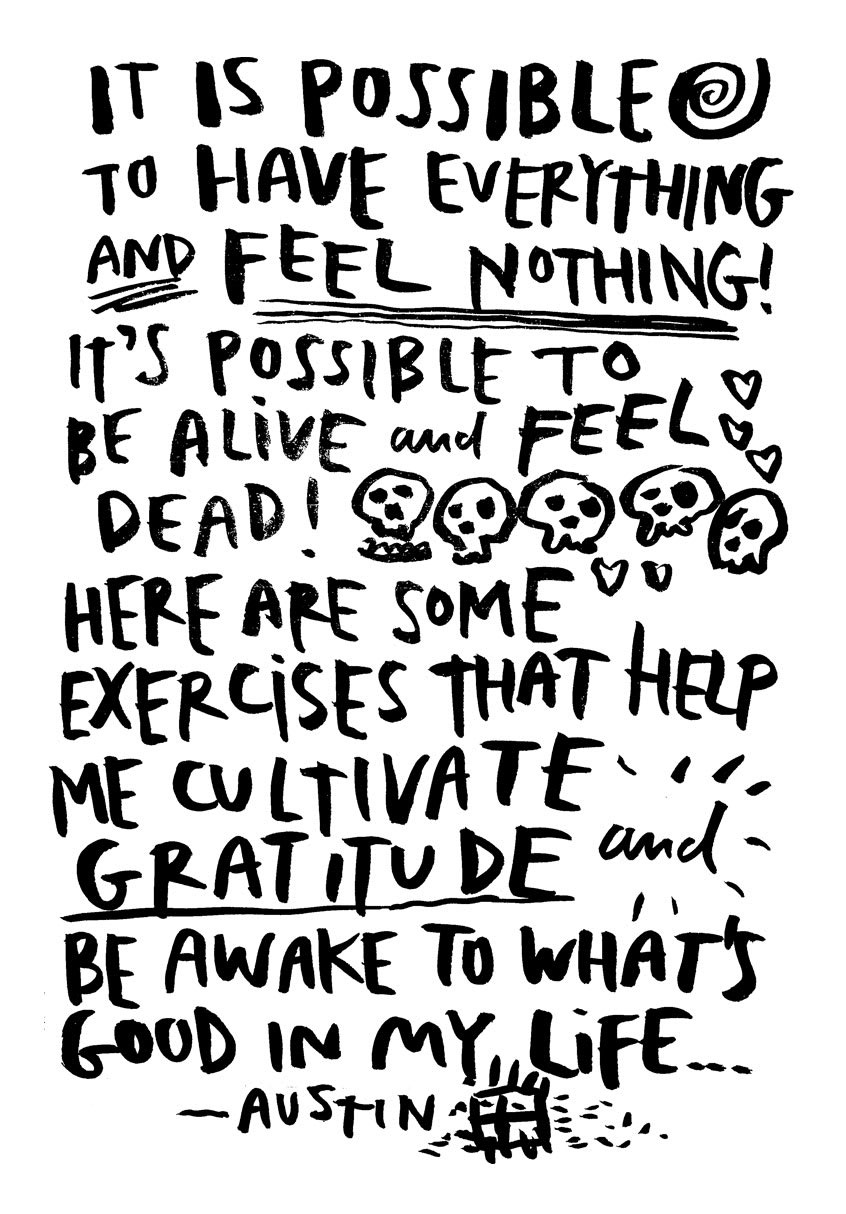 IT IS POSSIBLE
TO HAVE EVERYTHING
AND FEEL NOTHING!
IT'S POSSIBLE TO
BE ALiVE and FEEL
DEAD!
HERE ARE SOME
EXERCiSES THAT HELP
ME CULTIVATE
GRATITUDE and
BE AWAKE TO WHAT'S
GOOD IN MY LiFE...
—AUSTIN